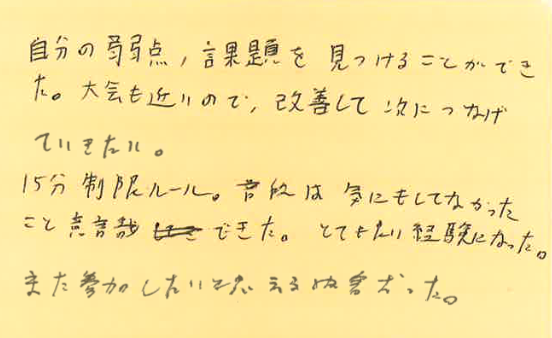 自分の弱点,課題を見つけることができ
た。大会も近いので,改善して次につなげ
ていきたい。
15分制限ルール。普段は気にもしてなかった
こと意識できた。とてもいい経験になった。
また参加したいと思える内容だった。